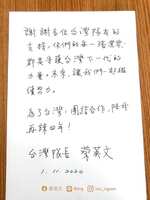 謝謝各位台灣隊友的
支持,你們的每一張選票
都是守護台灣下一代的
力量。未來,讓我們一起繼
續努力。
為了台灣,團結合作,陪我
再拚四年!
台灣隊長 蔡英文
1. 11. 2020
蔡英文
@iing
tsai_ingwen